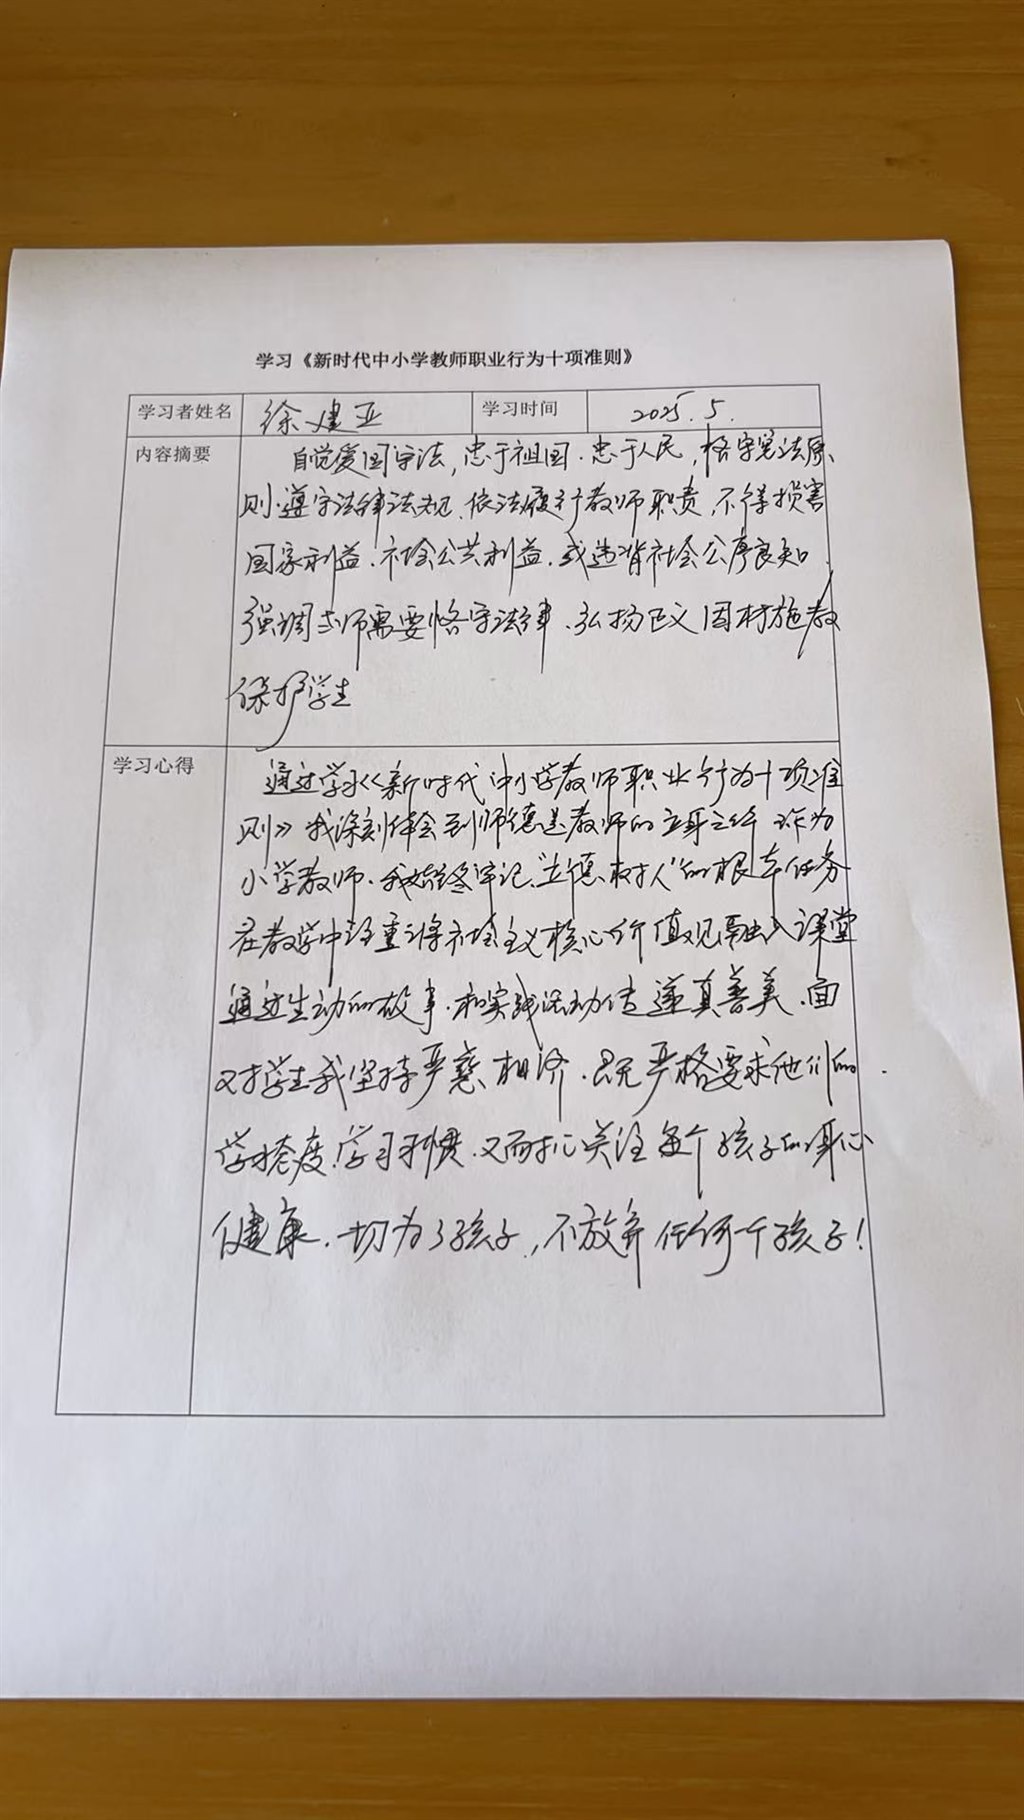 学习《新时代中小学教师职业行为十项准则》
学习者姓名 徐建亚 学习时间 2025.5.
内容摘要 自觉爱国守法,忠于祖国.忠于人民,格守宪法原
则.遵守法律法规、依法履行教师职责,不得损害
国家利益.社会公共利益.或违背社会公序良知.
强调老师需要恪守法律.弘扬正义因材施教
保护学生
学习心得 通过学习《新时代中小学教师职业行为十项准
则》我深刻体会到师德是教师的立身之 作为
小学教师.我始终牢记"立德树人"的根本任务
在教学中注重将社会主义核心价值观融入课堂
通过生动的故事.和实践活动传递真善美.面
对学生我坚持严慈相济.既严格要求他们的
学 态度.学习习惯.又耐心关注每个孩子的身心
健康.一切为了孩子,不放弃任何一个孩子!